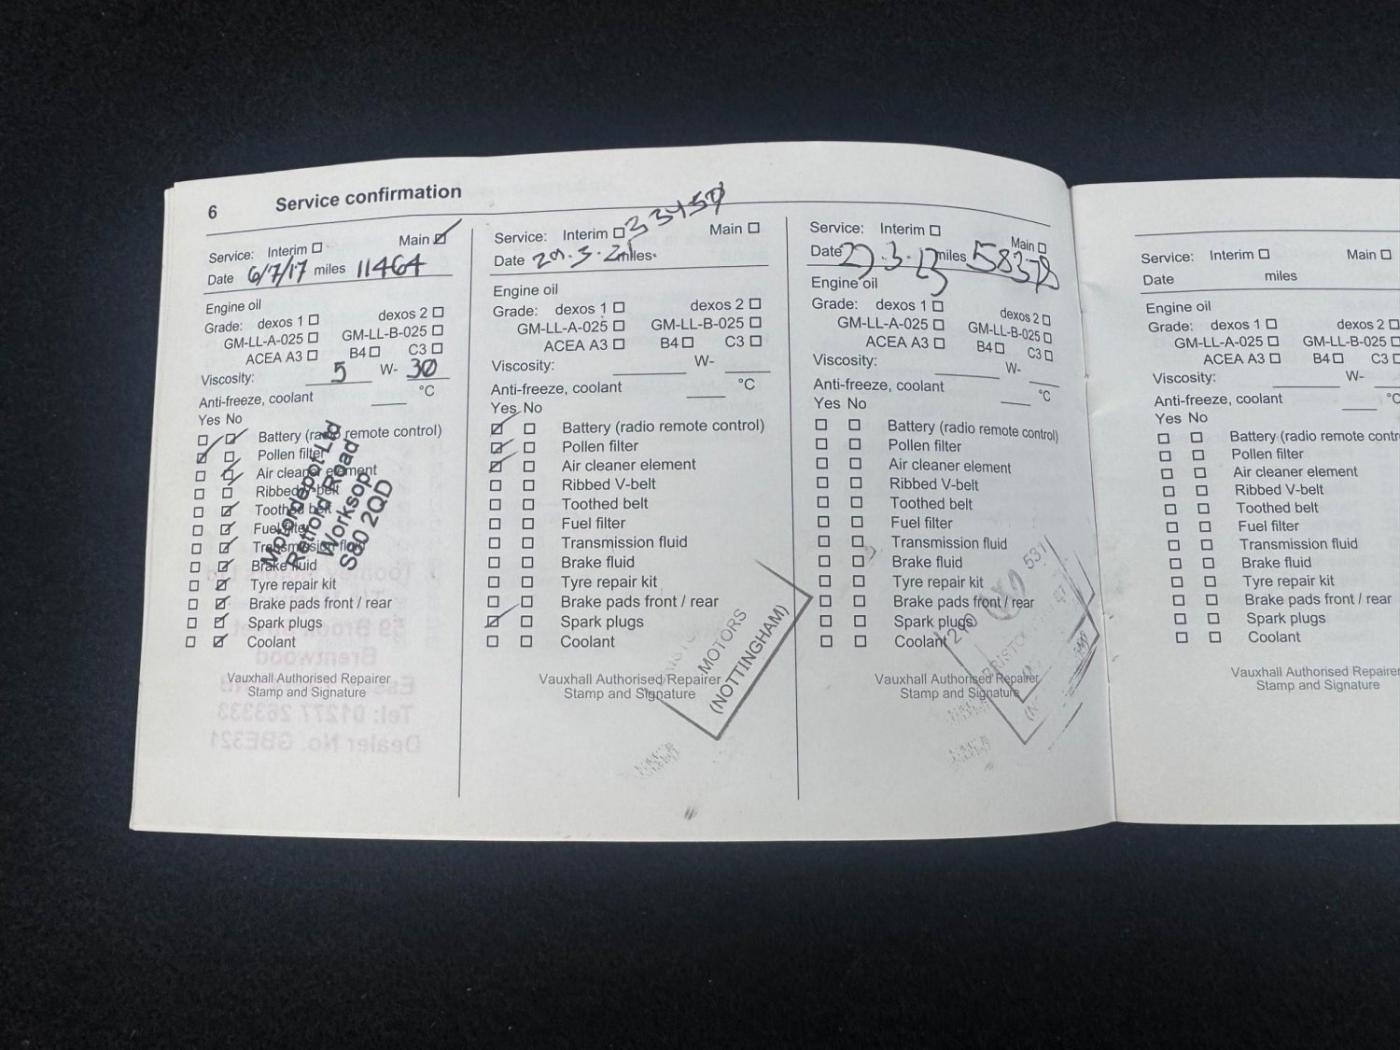 6 Service confirmation
Service: Interim ☐ Main ☑
Date 6/7/17 miles 11464
Engine oil
Grade: dexos 1 ☐ dexos 2 ☐
GM-LL-A-025 ☐ GM-LL-B-025 ☐
ACEA A3 ☐ B4 ☐ C3 ☐
Viscosity: 5 W- 30
Anti-freeze, coolant °C
Yes No
Battery (radio remote control)
Pollen filter
Air cleaner element
Ribbed V-belt
Toothed belt
Fuel filter
Transmission fluid
Brake fluid
Tyre repair kit
Brake pads front / rear
Spark plugs
Coolant
Motordepot Ltd
Retford Road
Worksop
S80 2QD
Vauxhall Authorised Repairer
Stamp and Signature
Brentwood
Tel: 01277 263333
Dealer No. GBE321
Service: Interim ☐ Main ☐
Date miles
Engine oil
Grade: dexos 1 ☐ dexos 2 ☐
GM-LL-A-025 ☐ GM-LL-B-025 ☐
ACEA A3 ☐ B4 ☐ C3 ☐
Viscosity: W-
Anti-freeze, coolant °C
Yes No
Battery (radio remote control)
Pollen filter
Air cleaner element
Ribbed V-belt
Toothed belt
Fuel filter
Transmission fluid
Brake fluid
Tyre repair kit
Brake pads front / rear
Spark plugs
Coolant
MOTORS
(NOTTINGHAM)
Vauxhall Authorised Repairer
Stamp and Signature
Service: Interim ☐ Main ☐
Date miles
Engine oil
Grade: dexos 1 ☐ dexos 2 ☐
GM-LL-A-025 ☐ GM-LL-B-025 ☐
ACEA A3 ☐ B4 ☐ C3 ☐
Viscosity: W-
Anti-freeze, coolant °C
Yes No
Battery (radio remote control)
Pollen filter
Air cleaner element
Ribbed V-belt
Toothed belt
Fuel filter
Transmission fluid
Brake fluid
Tyre repair kit
Brake pads front / rear
Spark plugs
Coolant
Vauxhall Authorised Repairer
Stamp and Signature
Service: Interim ☐ Main ☐
Date miles
Engine oil
Grade: dexos 1 ☐ dexos 2 ☐
GM-LL-A-025 ☐ GM-LL-B-025 ☐
ACEA A3 ☐ B4 ☐ C3
Viscosity: W-
Anti-freeze, coolant °C
Yes No
Battery (radio remote contr
Pollen filter
Air cleaner element
Ribbed V-belt
Toothed belt
Fuel filter
Transmission fluid
Brake fluid
Tyre repair kit
Brake pads front / rear
Spark plugs
Coolant
Vauxhall Authorised Repairer
Stamp and Signature